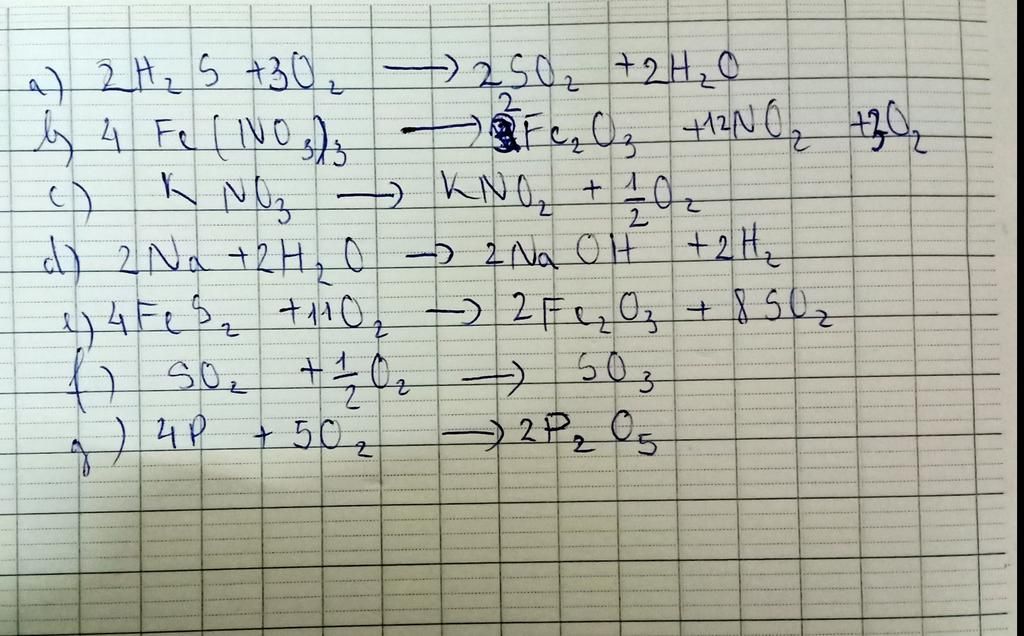 a) 2H₂S + 3O₂ ⟶ 2SO₂ + 2H₂O
b) 4Fe(NO₃)₃ ⟶ 2Fe₂O₃ + 12NO₂ + 3O₂
c) KNO₃ ⟶ KNO₂ + 1/2 O₂
d) 2Na + 2H₂O ⟶ 2NaOH + 2H₂
e) 4FeS₂ + 11O₂ ⟶ 2Fe₂O₃ + 8SO₂
f) SO₂ + 1/2 O₂ ⟶ SO₃
g) 4P + 5O₂ ⟶ 2P₂O₅